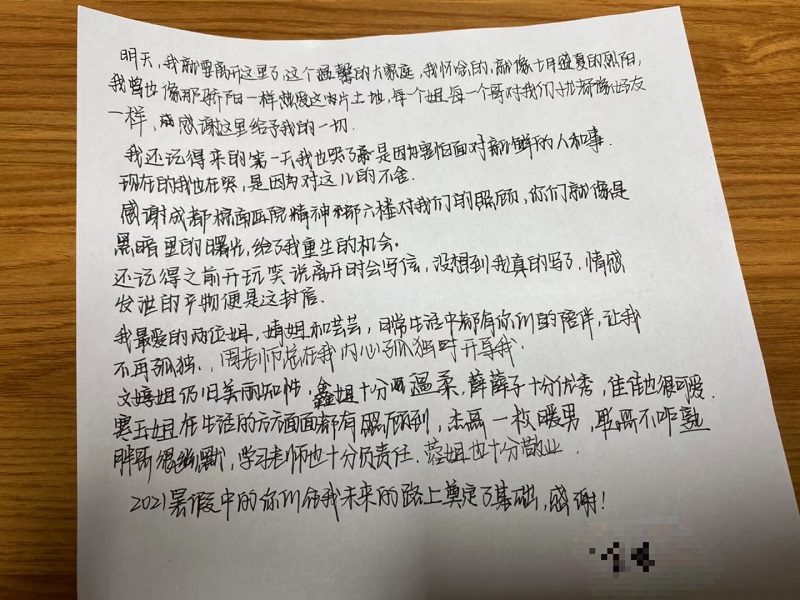 明天,我就要离开这里了,这个温馨的大家庭,我怀念的,就像七月盛夏的烈阳,
我曾也像那骄阳一样热爱这片土地,每个姐每一个哥对我们都像好友
一样,感谢这里给予我的一切.
我还记得来的第一天我也哭了是因为害怕面对新鲜的人和事.
现在的我也在哭,是因为对这儿的不舍.
感谢成都棕南医院精神科部六楼对我们的照顾,你们就像是
黑暗里的曙光,给了我重生的机会。
还记得之前开玩笑说离开时会写信,没想到我真的写了,情感
发泄的产物便是这封信.
我最爱的两位姐,婧姐和芸芸,日常生活中都有你们的陪伴,让我
不再孤独.,周老师总在我内心孤独时开导我.
文婷姐仍旧美丽知性,鑫姐十分温柔,薛薛子十分优秀,佳佳也很可爱.
寒玉姐在生活的方方面面都有照顾到,杰哥一枚暖男,哥不咋熟
胖哥很幽默,学习老师也十分负责任.蓉姐也十分敬业.
2021暑假中的你们给我未来的路上奠定了基础,感谢!